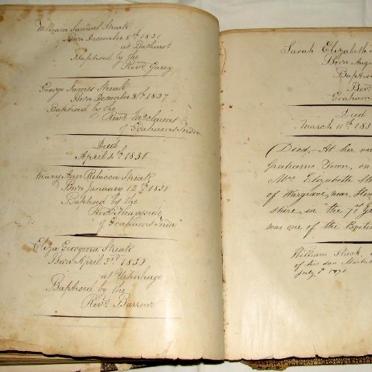 William Samuel Streak
Born December 8th 1831
at Bathurst
Baptised by the
Revd Carey
George James Streak
Born December 8th 1837
Baptised by the
Revd
of Grahams Town
Died
April 4th 1838
Mary Ann Rebecca Streak
Born January 12th 1831
Baptised by the
Revd
of Grahams Town
Eliza Georgina Streak
Born April 3rd 1833
at Uitenhage
Baptised by the
Revd Barrow
Sarah Elizabeth
Born Aug
Baptise
Revd
Graham
Died
March 11th 185
Died, At her
Grahams Town, on
Mrs Elizabeth St
of Wargrave, near
shire, on the 7th
was one of the
William
of his son
July